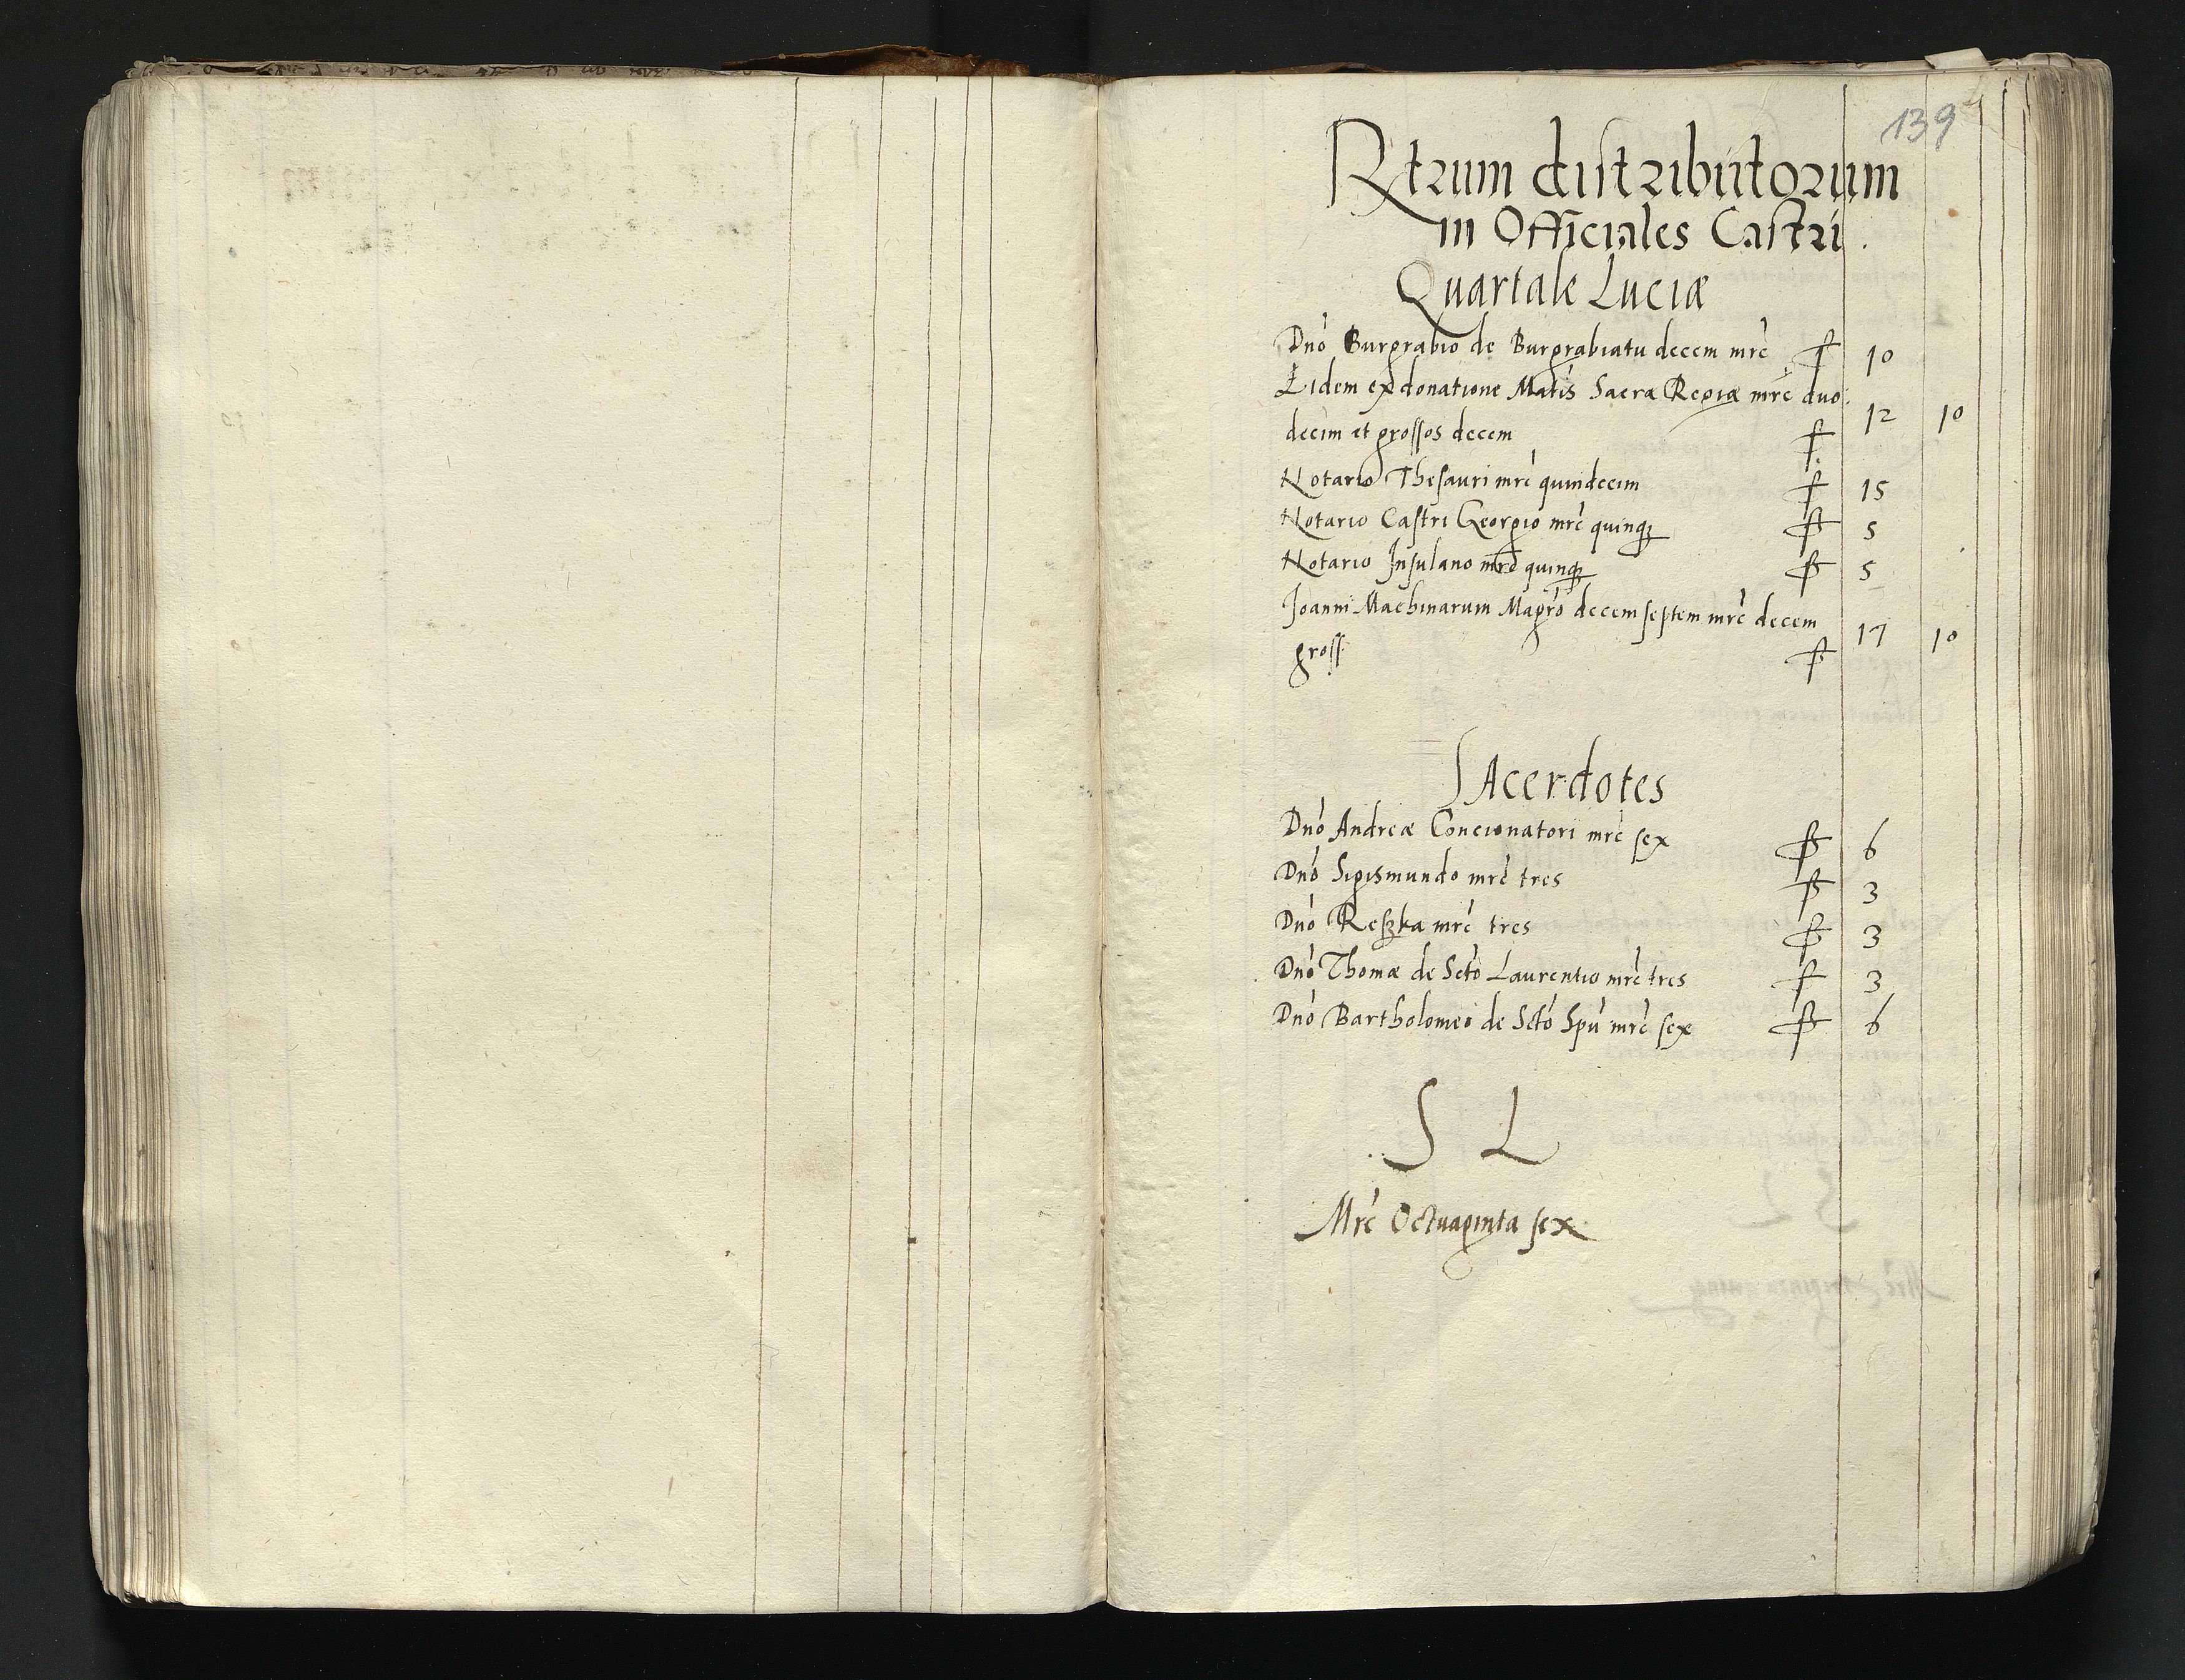 139
Rtrum distributorum
in Officiales Castri.
Quartale Luciæ
Dnō Burgrabio de Burgrabiatu decem mrc̄ 10
Eidem ex donatione Matis Sacræ Regiæ mrc̄ duo:
decim et grossos decem 12 10
Notario Thesauri mrc̄ quindecim 15
Notario Castri Georgio mrc̄ quinqȝ 5
Notario Insulano mrc̄ quinqȝ 5
Joanni Machinarum Magrō decem septem mrc̄ decem
gross 17 10
SAcerdotes
Dnō Andreæ Concionatori mrc̄ sex 6
Dnō Sigismundo mrc̄ tres 3
Dnō Reszka mrc̄ tres 3
Dnō Thomæ de Sctō Laurentio mrc̄ tres 3
Dnō Bartholomeo de Sctō Spū mrc̄ sex 6
S L
Mrc̄ Octuaginta sex